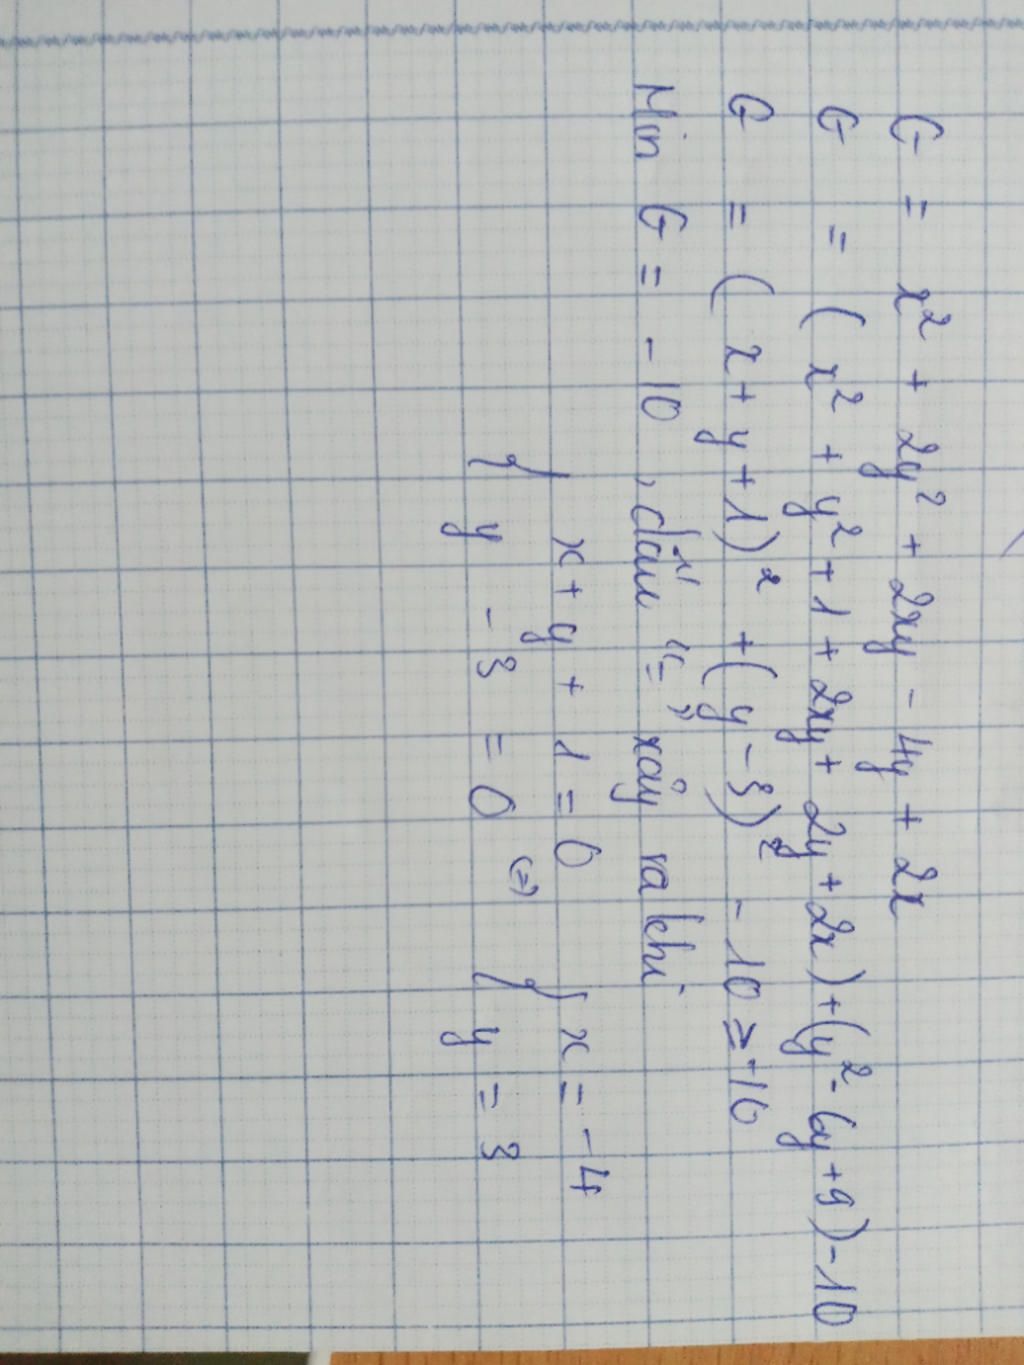 G = x² + 2y² + 2xy - 4y + 2x
G = (x² + y² + 1 + 2xy + 2y + 2x) + (y² - 6y + 9) - 10
G = (x + y + 1)² + (y - 3)² - 10 ≥ -10
Min G = -10, dấu "=" xảy ra khi
{ x + y + 1 = 0 (=) { x = -4
y - 3 = 0 y = 3